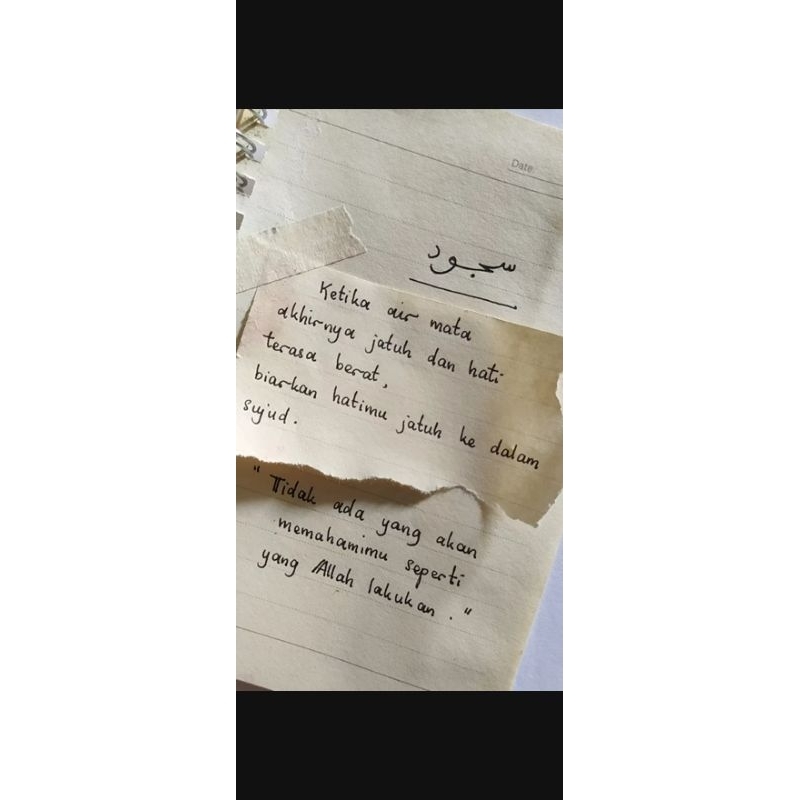 Date
سجود
Ketika air mata
akhirnya jatuh dan hati
terasa berat,
biarkan hatimu jatuh ke dalam
sujud.
"Tidak ada yang akan
memahamimu seperti
yang Allah lakukan."